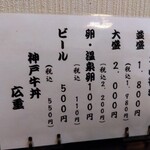 並盛 1,800円
大盛 2,000円
(税込 2,200円)
卵・温泉卵 100円
(税込 110円)
ビール 500円
(税込 550円)
神戸牛丼
広重